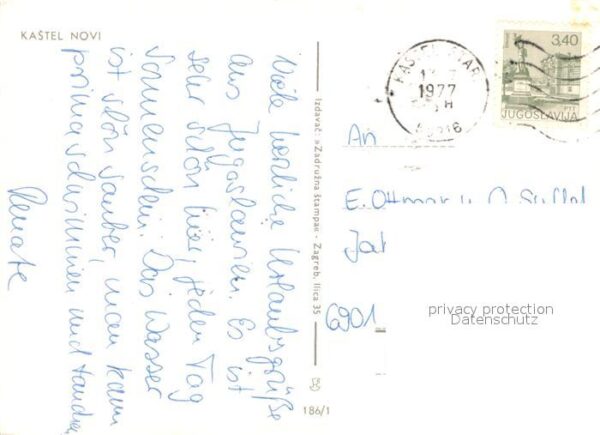 KAŠTEL NOVI
Viele herzliche Urlaubsgrüße
aus Jugoslawien. Es ist
sehr schön hier, jeden Tag
Sonnenschein. Das Wasser
ist schön sauber, man kann
prima schwimmen und tauchen
Renate
Izdavač: »Zadružna štampa« - Zagreb, Ilica 35
186/1
1977
3,40
JUGOSLAVIJA
An
E. Ottmar u.
6901
privacy protection
Datenschutz